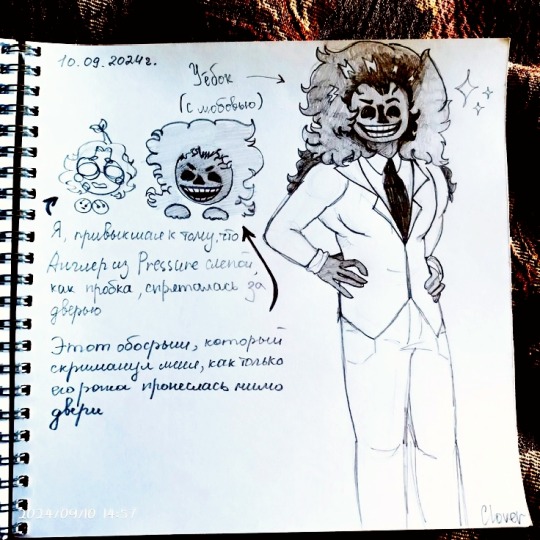 10.09.2024г.
Уёбок
(с любовью)
Я, привыкшая к тому, что
Англер из Pressure слепой,
как пробка, спряталась за
дверью
Этот обосрыш, который
скриманул меня, как только
его рожа пронеслась мимо
двери
Clover